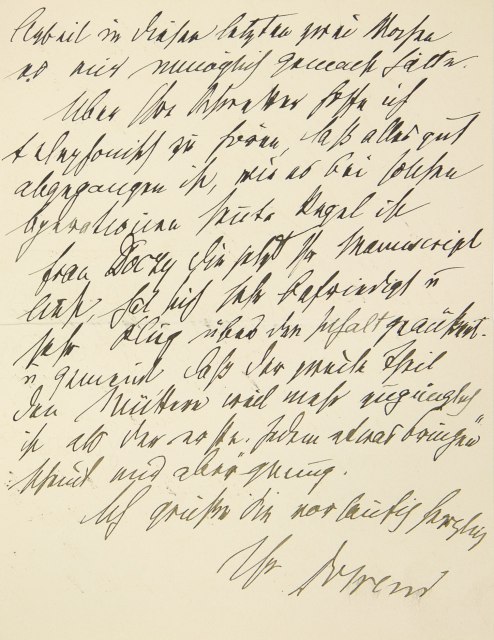 Arbeit in diesen letzten zwei Wochen
es mir unmöglich gemacht hätte.
Über Ihre Schwester hoffe ich
telephonisch zu hören, daß alles gut
abgegangen ist, wie es bei solchen
Operationen heute Regel ist
Frau Dóczy die jetzt Ihr Manuscript
liest, hat sich sehr befriedigt u
sehr klug über den Inhalt geäußert.
u gemeint daß der zweite Theil
den Müttern weil mehr zugänglich
ist als der erste. Jedem etwas bringen
scheint
Ich grüße Sie vorläufig herzlich
Ihr